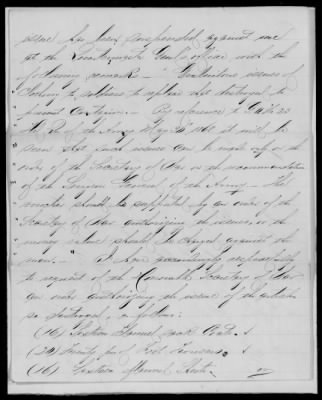 issue has been suspended against me
at the Quartermaster Genl's office with the
following remarks — "Gratuitous issues of
Clothing to soldiers to replace that destroyed to
prevent contagion — By reference to
of the Army May 1861 it will be
seen that such issues can be made only on the
order of the Secretary of War on the recommendation
of the Surgeon General of the Army — The
voucher should be supported by an order of the
Secretary of War authorizing the issues, or the
money value should be charged against the
men." — I have accordingly respectfully
to request of the Honorable Secretary of War
an order authorizing the issue of the articles
so destroyed, as follows:
(16) Sixteen Flannel Sack Coats
(24) Twenty four Foot Trowsers
(16) Sixteen Flannel Shirts